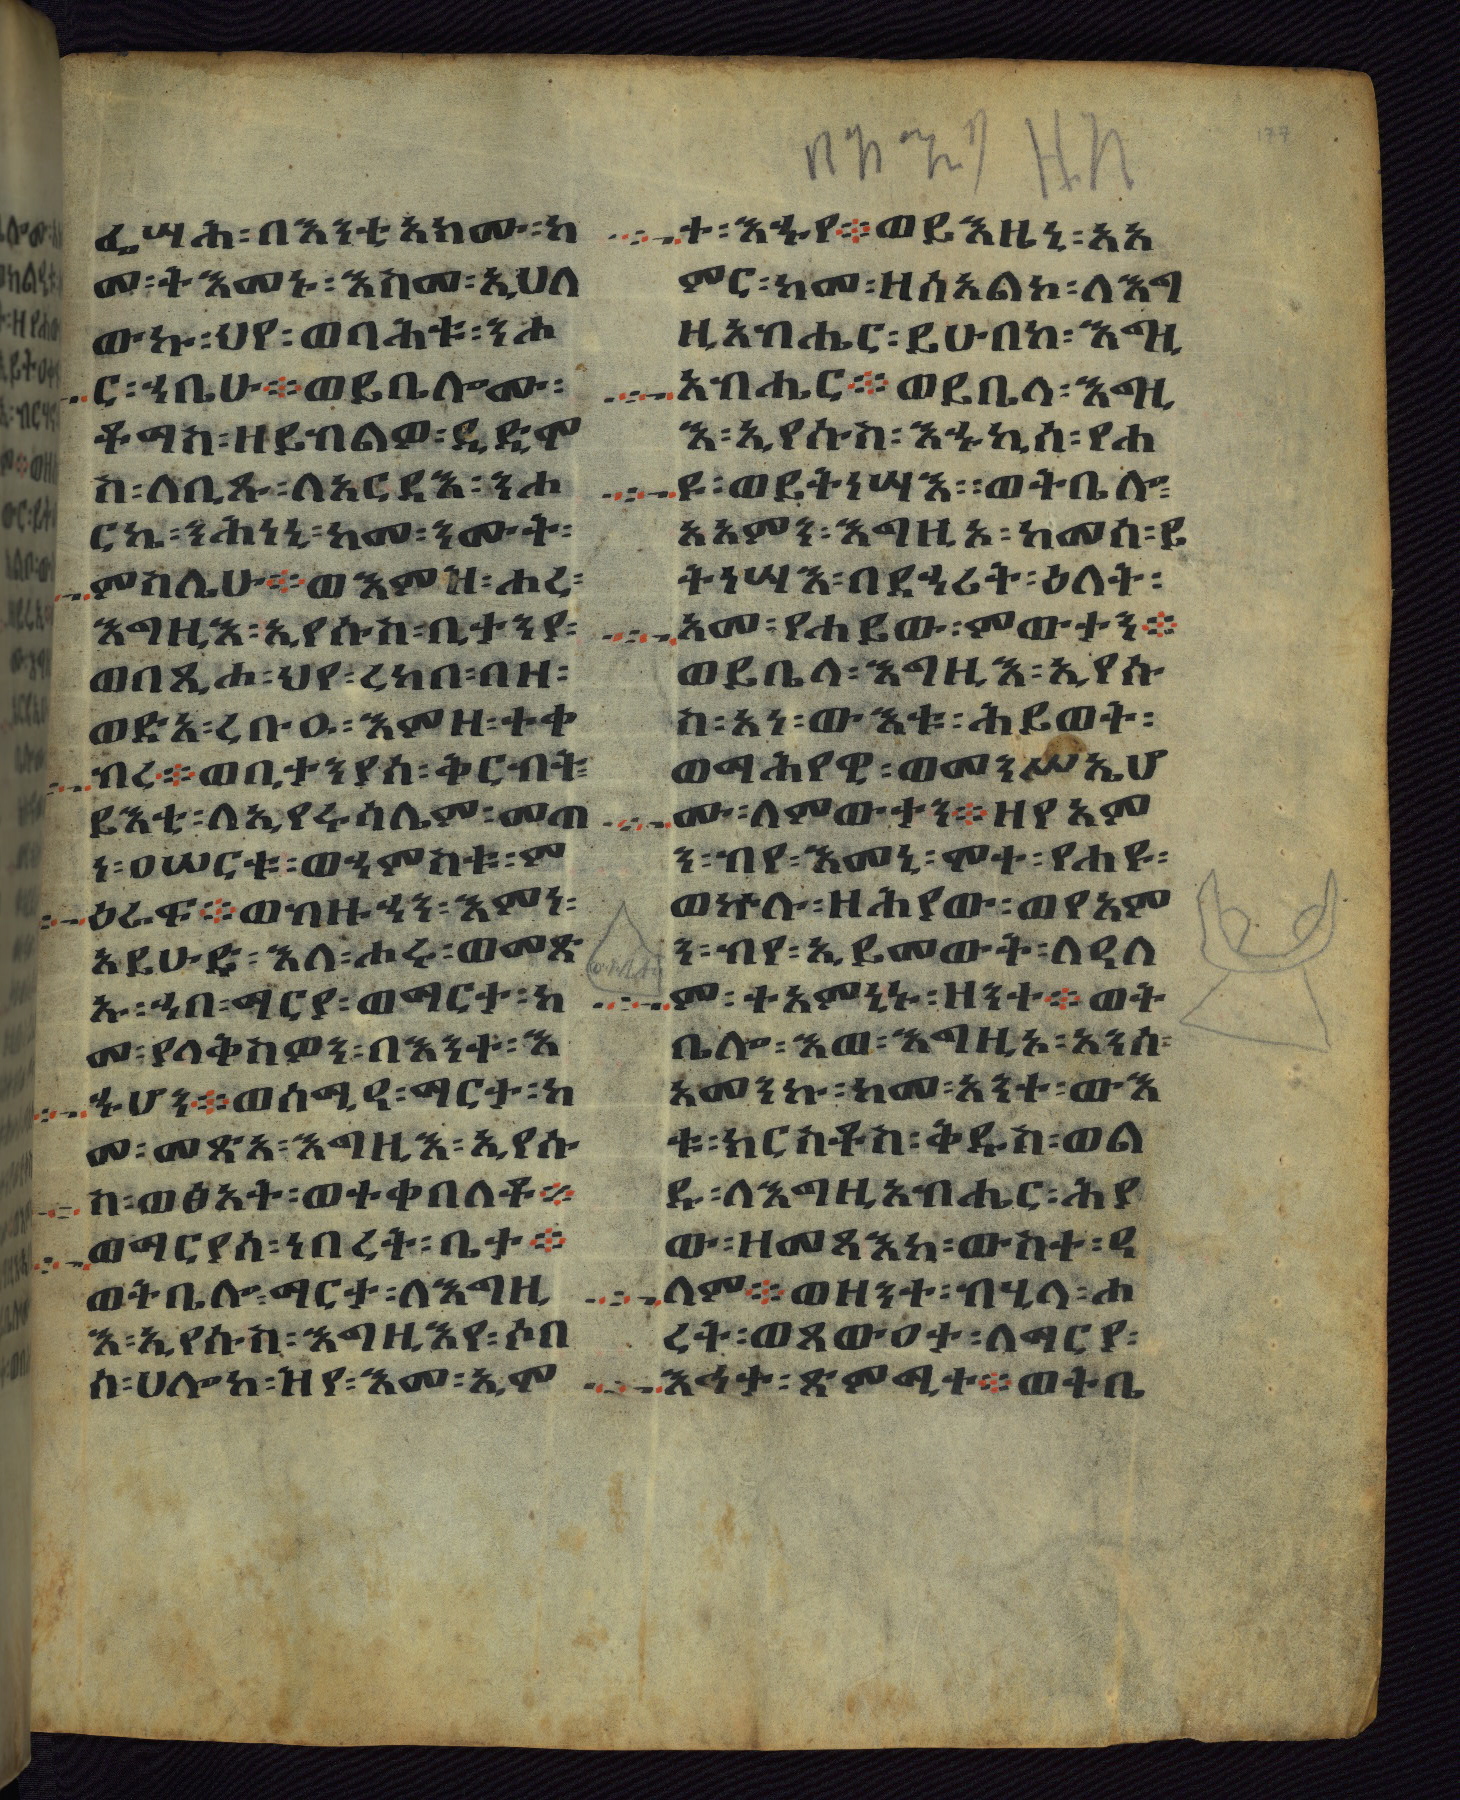 ፌሣሕ፡በእንቲአክሙ፡ከ
መ፡ትእመኑ፡እስመ፡ኢሀለ
ውኩ፡ህየ፡ወባሕቱ፡ንሑ
ር፡ኀቤሁ፨ወይቤሎሙ፡
ቶማስ፡ዘይብልዎ፡ዲዲሞ
ስ፡ለቢጹ፡ለአርዳእ፡ንሑ
ርኬ፡ንሕነኒ፡ከመ፡ንሙት፡
ምስሌሁ፨ወእምዝ፡ሖረ፡
እግዚእ፡ኢየሱስ፡ቢታንያ፡
ወበጺሖ፡ህየ፡ረከቦ፡በዘ፡
ወድአ፡ረቡዑ፡እምዘ፡ተቀ
ብረ፨ወቢታንያስ፡ቅርብት፡
ይእቲ፡ለኢየሩሳሌም፡መጠ
ነ፡ዐሠርቱ፡ወኀምስቱ፡ም
ዕራፍ፨ወብዙኃን፡እምነ፡
አይሁድ፡እለ፡ሖሩ፡ወመጽ
ኡ፡ኀበ፡ማርያ፡ወማርታ፡ከ
መ፡ያላቅስዎን፡በእንተ፡እ
ኁሆን፨ወሰሚዓ፡ማርታ፡ከ
መ፡መጽአ፡እግዚእ፡ኢየሱ
ስ፡ወፅአት፡ወተቀበለቶ፨
ወማርያስ፡ነበረት፡ቤታ፨
ወትቤሎ፡ማርታ፡ለእግዚ
እ፡ኢየሱስ፡እግዚእየ፡ሶበ
ሰ፡ሀሎከ፡ዝየ፡እመ፡ኢሞ
ተ፡እኁየ፨ወይእዜኒ፡አአ
ምር፡ከመ፡ዘሰአልኮ፡ለእግ
ዚአብሔር፡ይሁበከ፡እግዚ
አብሔር፨ወይቤላ፡እግዚ
እ፡ኢየሱስ፡እኁኪሰ፡የሐ
ዩ፡ወይትነሣእ፡፡ወትቤሎ፡
አአምን፡እግዚኦ፡ከመሰ፡ይ
ትነሣእ፡በደኃሪት፡ዕለት፡
አመ፡የሐይው፡ምውታን፨
ወይቤላ፡እግዚእ፡ኢየሱ
ስ፡አነ፡ውእቱ፡ሕይወት፡
ወማሕየዊ፡ወመንሥኢሆ
ሙ፡ለምውታን፨ዘየአም
ን፡ብየ፡እመኒ፡ሞተ፡የሐዩ፡
ወኵሉ፡ዘሕያው፡ወየአም
ን፡ብየ፡ኢይመውት፡ለዓለ
ም፡ተአምኒኑ፡ዘንተ፨ወት
ቤሎ፡እወ፡እግዚኦ፡አንሰ፡
አመንኩ፡ከመ፡አንተ፡ውእ
ቱ፡ክርስቶስ፡ቅዱስ፡ወል
ዱ፡ለእግዚአብሔር፡ሕያ
ው፡ዘመጻእከ፡ውስተ፡ዓ
ለም፨ወዘንተ፡ብሂላ፡ሖ
ረት፡ወጸውዐታ፡ለማርያ፡
እኅታ፡ጽምሚተ፨ወትቤ